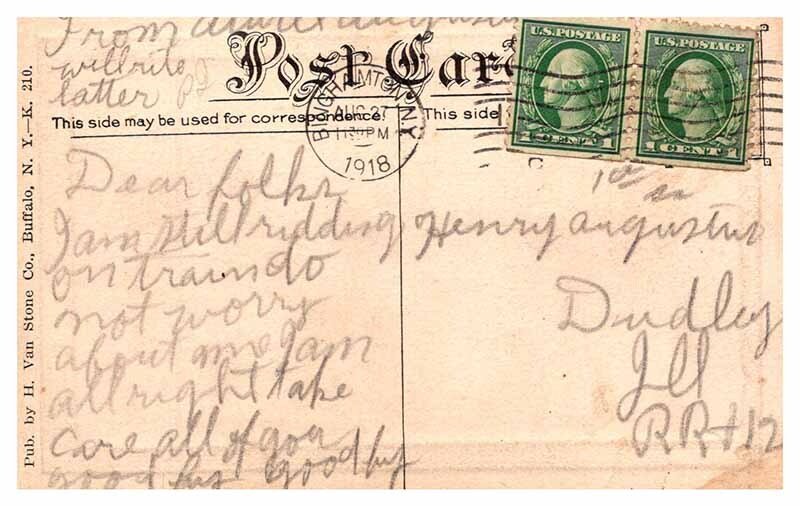 From
will rite
latter
Post Card
This side may be used for correspondence
This side
U.S. POSTAGE
1 CENT 1
U.S. POSTAGE
1 CENT 1
BINGHAMTON
N.Y.
AUG 27
1130 PM
1918
Dear folks
I am still ridding
on train do
not worry
about me I am
all right take
care all of you
good by good by
Henry Augustus
Dudley
Ill
Pub. by H. Van Stone Co., Buffalo, N. Y.—K. 210.